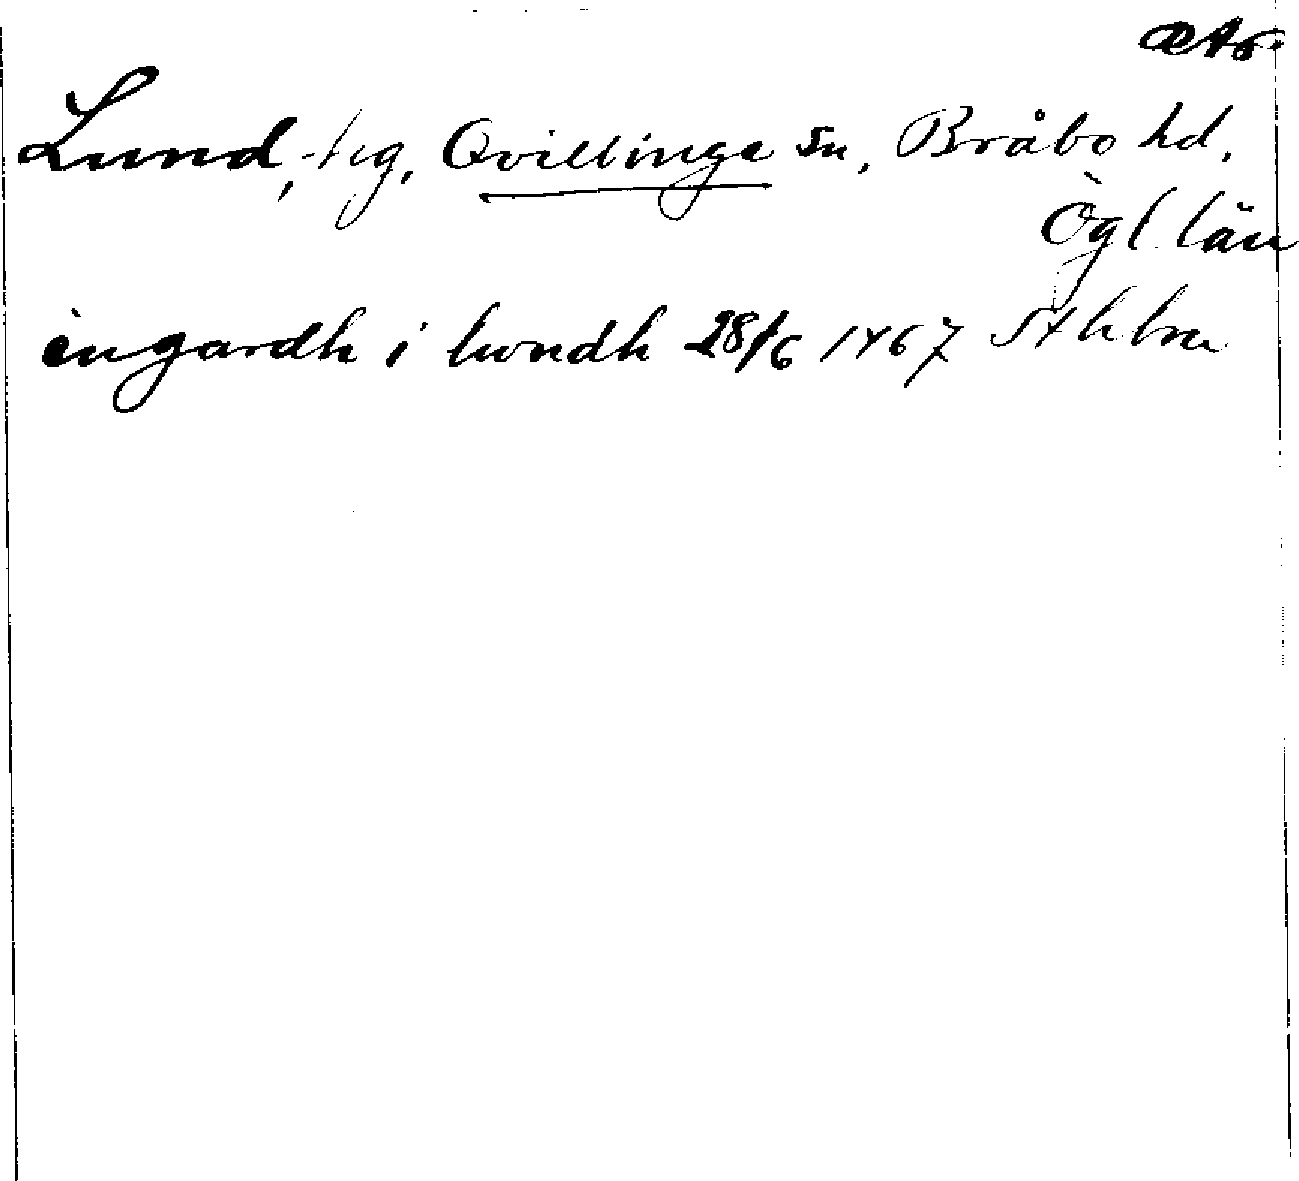 Lund, hg, Qvillinge sn, Bråbo hd,
Ögl län
en gardh i lundh 28/6 1467